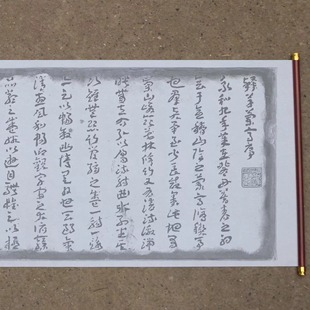 草蘭亭序
永和九年歲在癸丑暮春之初
會于會稽山陰之蘭亭脩禊事
也群賢畢至少長咸集此地有
崇山峻領茂林脩竹又有清流激湍
暎帶左右引以為流觴曲水列坐其
次雖無絲竹管弦之盛一觴一詠
亦足以暢敘幽情是日也天朗氣
清惠風和暢仰觀宇宙之大俯察
品類之盛所以遊目騁懷足以極